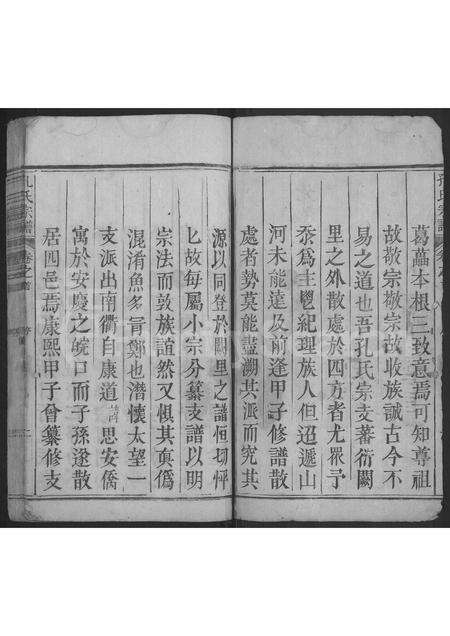 葛藟本根三致意焉可知尊祖
故敬宗敬宗故收族誠古今不
易之道也吾孔氏宗支蕃衍闕
里之外散處於四方者尤眾予
忝為主鬯紀理族人但迢遞山
河未能達及前逢甲子修譜散
處者勢莫能盡溯其派而究其
源以同登於闕里之譜恒切怦
匕故每屬小宗分纂支譜以明
宗法而敦族誼然又懼其真偽
混淆魚多盲鄭也潛懷太望一
支派出南衢自康道諱思安僑
寓於安慶之皖口而子孫遂散
居四邑焉康熙甲子曾纂修支
孔氏宗譜 卷之首